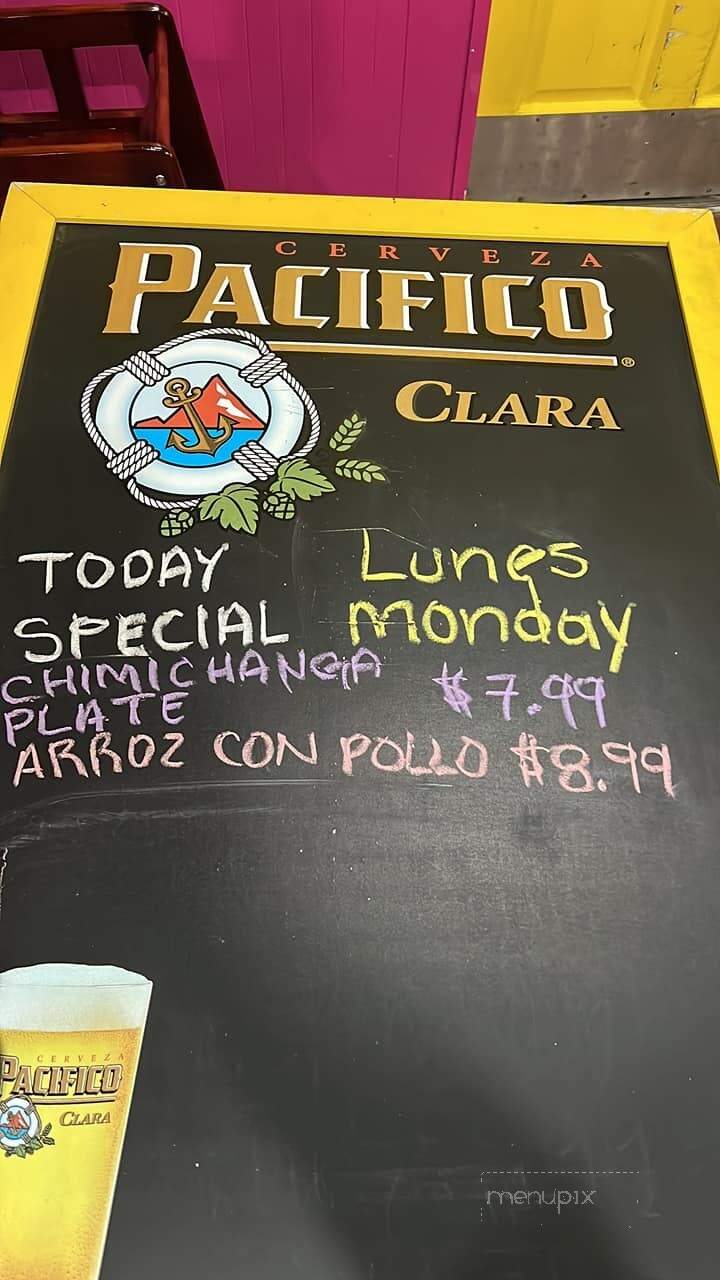 CERVEZA
PACIFICO®
CLARA
TODAY Lunes
SPECIAL Monday
CHIMICHANGA
PLATE $7.99
ARROZ CON POLLO $8.99
CERVEZA
PACIFICO
CLARA
menupix